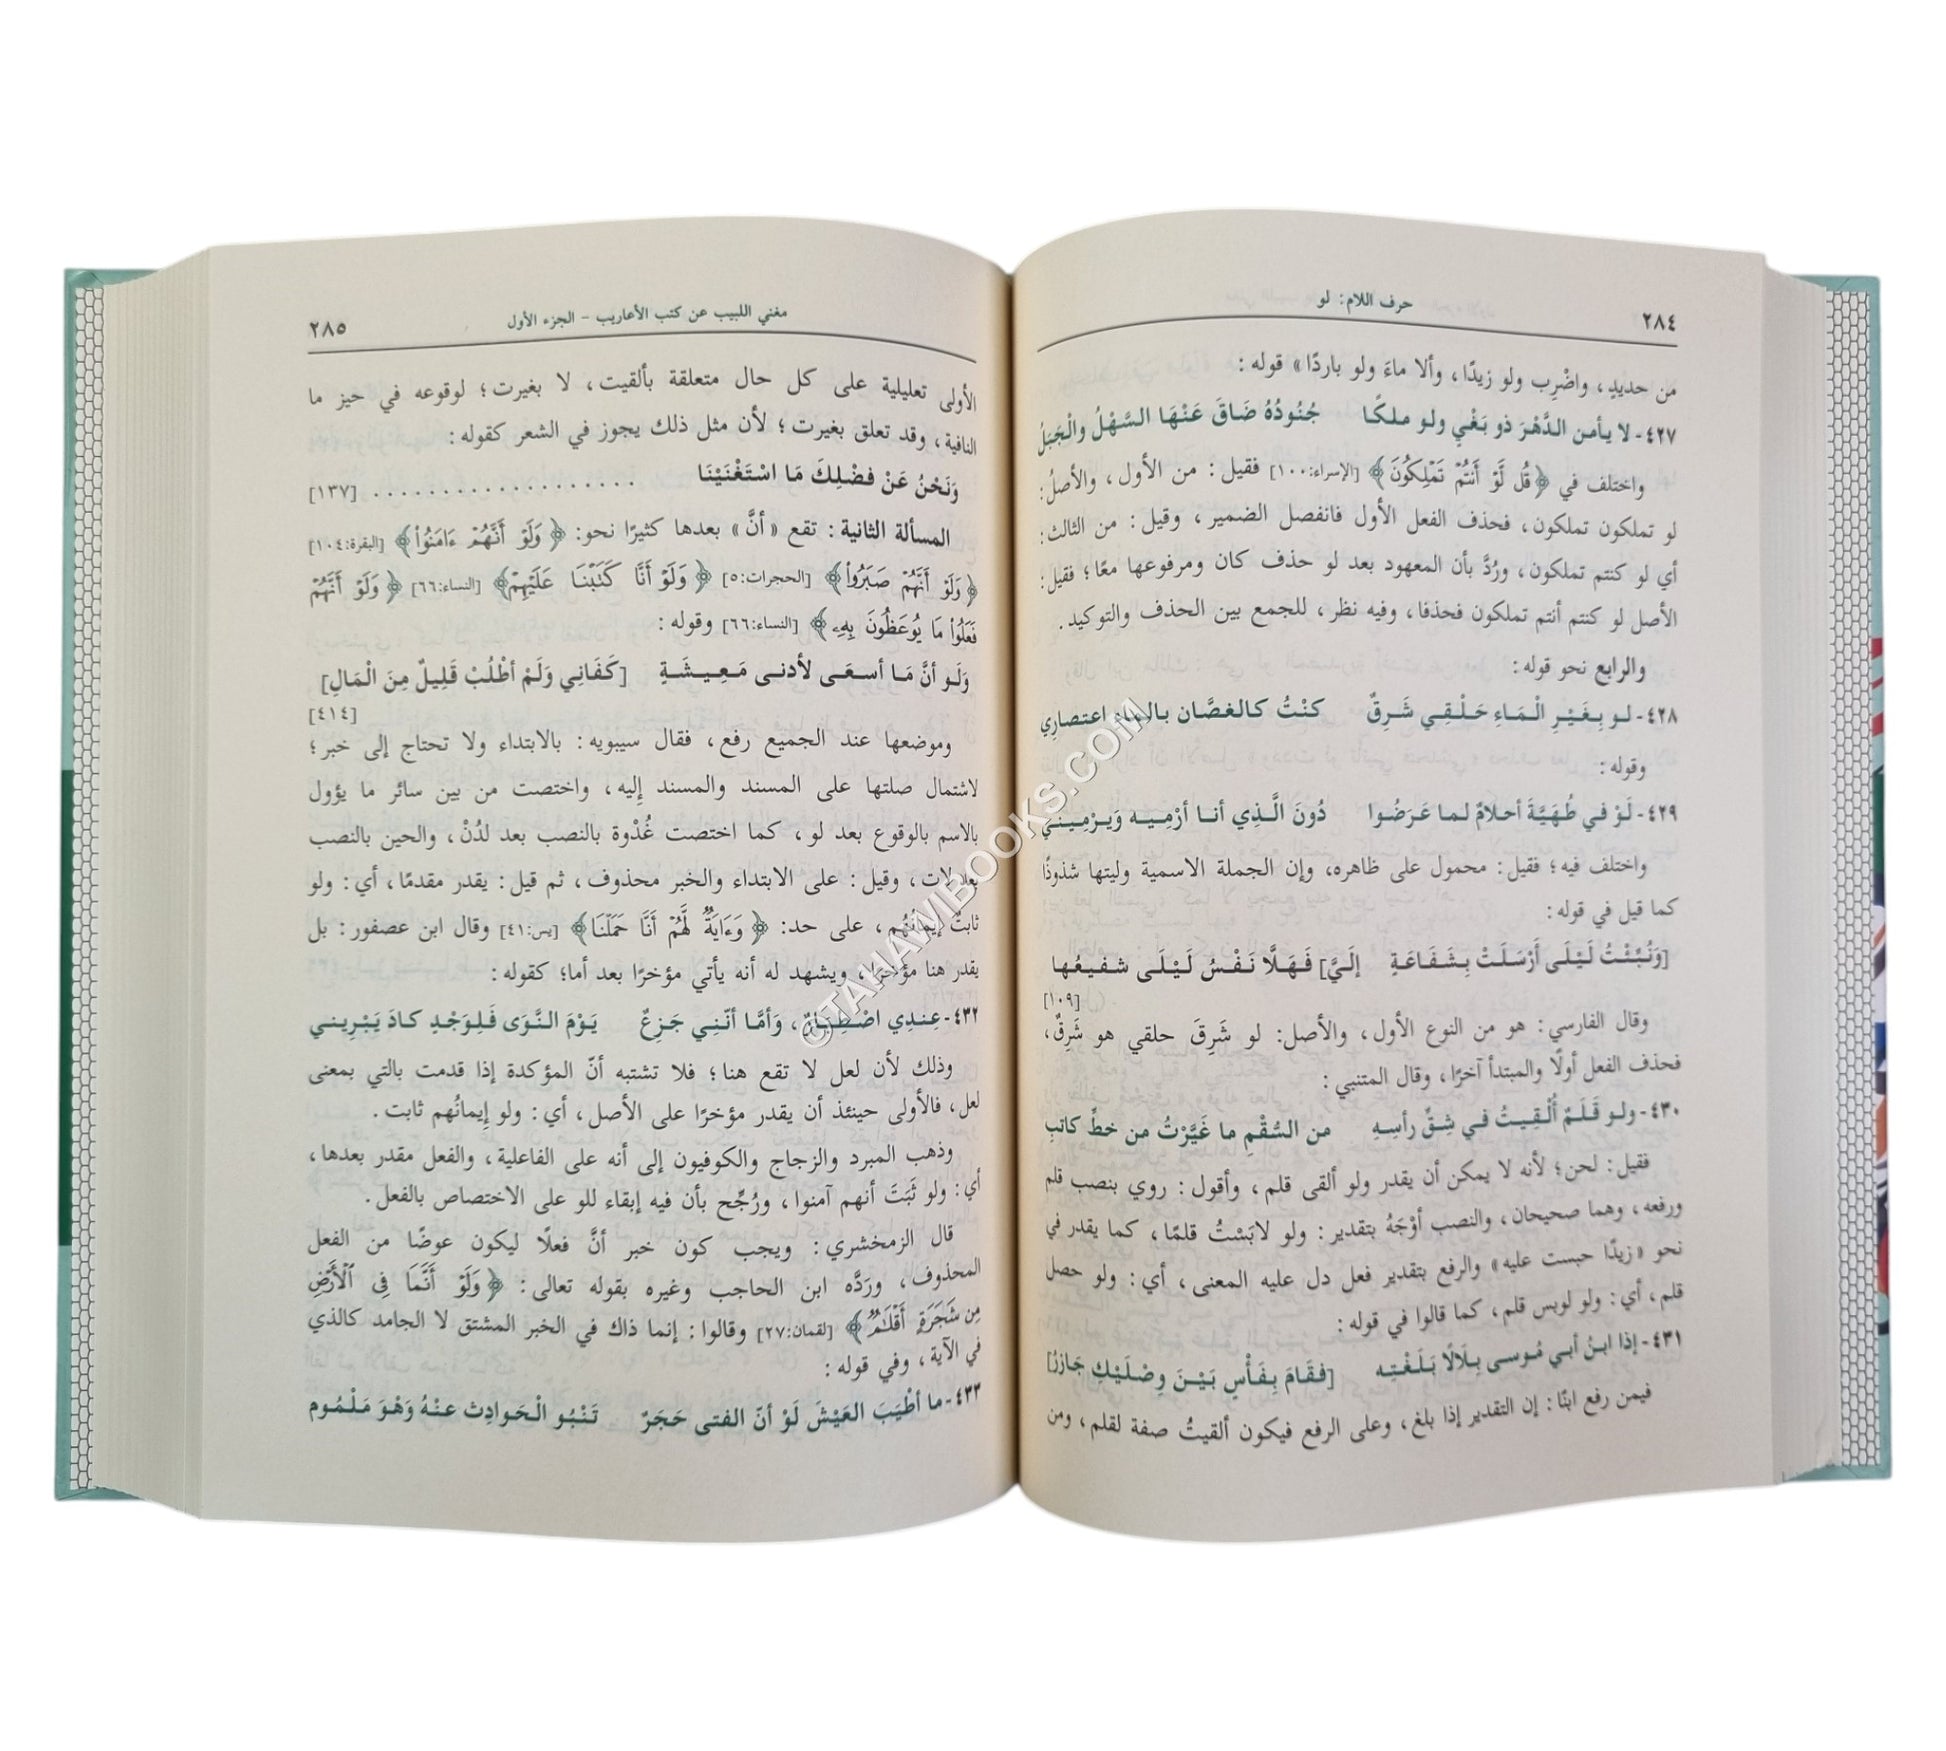 ٢٨٤
حرف اللام: لو
من حديدٍ، واضْرِب ولو زيدًا، وألا ماءَ ولو باردًا» قوله:
٤٢٧- لا يأمن الدَّهْرَ ذو بَغْيٍ ولو ملكًا جُنُودُهُ ضَاقَ عَنْهَا السَّهْلُ والْجَبَلُ
واختلف في ﴿قُل لَّوۡ أَنتُمۡ تَمۡلِكُونَ﴾ [الإسراء:١٠٠] فقيل: من الأول، والأصلُ:
لو تملكون تملكون، فحذف الفعل الأول فانفصل الضمير، وقيل: من الثالث:
أي لو كنتم تملكون، ورُدَّ بأن المعهود بعد لو حذف كان ومرفوعها معًا؛ فقيل:
الأصل لو كنتم أنتم تملكون فحذفا، وفيه نظر، للجمع بين الحذف والتوكيد.
والرابع نحو قوله:
٤٢٨- لـو بِـغَـيْـرِ الْـمَـاءِ حَـلْـقِـي شَـرِقٌ كنْتُ كالغصَّان بالماء اعتصارِي
وقوله:
٤٢٩- لَوْ في طُهَيَّةَ أحلامٌ لـما عَـرَضُوا دُونَ الَّـذِي أنـا أرْمِـيـه وَيَـرْمِـيـنـي
واختلف فيه؛ فقيل: محمول على ظاهره، وإن الجملة الاسمية وليتها شذوذًا
كما قيل في قوله:
[وَنُـبِّـئْـتُ لَـيْـلَـى أَرْسَلَـتْ بِـشَـفَـاعَـةٍ إلَيَّ] فَـهَـلَّا نَـفْـسُ لَـيْـلَـى شـفـيـعُـهـا
[١٠٩]
وقال الفارسي: هو من النوع الأول، والأصل: لو شَرِقَ حلقي هو شَرِقٌ،
فحذف الفعل أولًا والمبتدأ آخرًا، وقال المتنبي:
٤٣٠- ولـو قَـلَـمٌ أُلْـقِـيـتُ فـي شِـقِّ رأسِـهِ من السُّقْمِ ما غَيَّرْتُ من خطِّ كاتبِ
فقيل: لحن؛ لأنه لا يمكن أن يقدر ولو ألقى قلم، وأقول: روي بنصب قلم
ورفعه، وهما صحيحان، والنصب أوْجَهُ بتقدير: ولو لابَسْتُ قلمًا، كما يقدر في
نحو «زيدًا حبست عليه» والرفع بتقدير فعل دل عليه المعنى، أي: ولو حصل
قلم، أي: ولو لوبس قلم، كما قالوا في قوله:
٤٣١- إذا ابنُ أبي مُوسى بِلَالًا بَـلَـغْـتِـه [فقَامَ بِـفَـأْسٍ بَـيْـنَ وِصْـلَـيْـكِ جَازِرُ]
فيمن رفع ابنًا: إن التقدير إذا بلغ، وعلى الرفع فيكون ألقيتُ صفة لقلم، ومن
مغني اللبيب عن كتب الأعاريب - الجزء الأول
٢٨٥
الأولى تعليلية على كل حال متعلقة بألقيت، لا بغيرت؛ لوقوعه في حيز ما
النافية، وقد تعلق بغيرت؛ لأن مثل ذلك يجوز في الشعر كقوله:
وَنَحْنُ عَنْ فضْلِكَ مَا اسْتَغْنَيْنَا . . . . . . . . . . . . . . . . . . . [١٣٧]
المسألة الثانية: تقع «أنَّ» بعدها كثيرًا نحو: ﴿وَلَوۡ أَنَّهُمۡ ءَامَنُواْ﴾ [البقرة:١٠٤]
﴿وَلَوۡ أَنَّهُمۡ صَبَرُواْ﴾ [الحجرات:٥] ﴿وَلَوۡ أَنَّا كَتَبۡنَا عَلَيۡهِمۡ﴾ [النساء:٦٦] ﴿وَلَوۡ أَنَّهُمۡ
فَعَلُواْ مَا يُوعَظُونَ بِهِۦ﴾ [النساء:٦٦] وقوله:
وَلَـو أنَّ مَـا أسـعَـى لأدنـى مَـعِـيـشَـةٍ [كَفَانِي وَلَمْ أطْلُبْ قَلِيلٌ مِنَ الْمَالِ]
[٤١٤]
وموضعها عند الجميع رفع، فقال سيبويه: بالابتداء ولا تحتاج إلى خبر؛
لاشتمال صلتها على المسند والمسند إليه، واختصت من بين سائر ما يؤول
بالاسم بالوقوع بعد لو، كما اختصت غُدْوة بالنصب بعد لدُنْ، والحين بالنصب
بعد لات، وقيل: على الابتداء والخبر محذوف، ثم قيل: يقدر مقدمًا، أي: ولو
ثابتٌ إيمانُهُم، على حد: ﴿وَءَايَةٞ لَّهُمۡ أَنَّا حَمَلۡنَا﴾ [يس:٤١] وقال ابن عصفور: بل
يقدر هنا مؤخرًا، ويشهد له أنه يأتي مؤخرًا بعد أما؛ كقوله:
٤٣٢- عِـنـدِي اصْـطِـبَـارٌ، وَأمَّا أنّـنِـي جَـزِعٌ يَـوْمَ الـنَّـوَى فَـلِـوَجْـدٍ كـادَ يَـبْـرِيـنـي
وذلك لأن لعل لا تقع هنا؛ فلا تشتبه أنّ المؤكدة إذا قدمت بالتي بمعنى
لعل، فالأولى حينئذ أن يقدر مؤخرًا على الأصل، أي: ولو إيمانُهم ثابت.
وذهب المبرد والزجاج والكوفيون إلى أنه على الفاعلية، والفعل مقدر بعدها،
أي: ولو ثَبَتَ أنهم آمنوا، ورُجِّح بأن فيه إبقاء للو على الاختصاص بالفعل.
قال الزمخشري: ويجب كون خبر أنَّ فعلًا ليكون عوضًا من الفعل
المحذوف، وردَّه ابن الحاجب وغيره بقوله تعالى: ﴿وَلَوۡ أَنَّمَا فِي ٱلۡأَرۡضِ
مِن شَجَرَةٍ أَقۡلَٰمٞ﴾ [لقمان:٢٧] وقالوا: إنما ذاك في الخبر المشتق لا الجامد كالذي
في الآية، وفي قوله:
٤٣٣- ما أطْيَبَ العَيْشَ لَوْ أنّ الفتى حَجَرٌ تَـنْـبُـو الْـحَـوادِث عـنْـهُ وَهْـوَ مَـلْـمُـوم
©TAHAWIBOOKS.COM